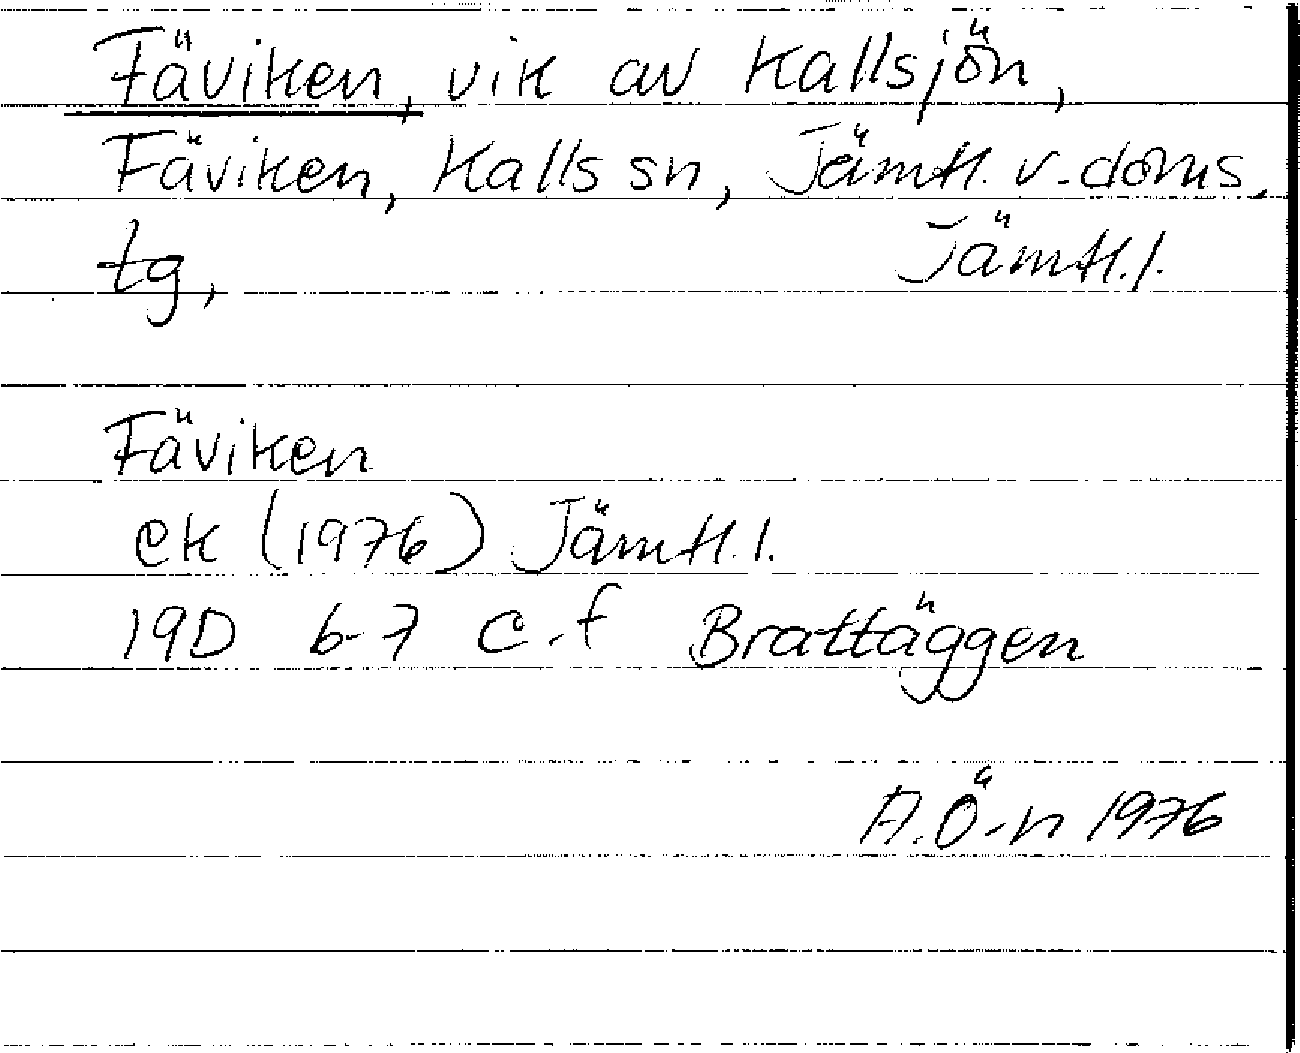 Fäviken, vik av Kallsjön,
Fäviken, Kalls sn, Jämtl. v. doms.
tg, Jämtl. l.
Fäviken
ek (1976) Jämtl. l.
19D 6-7 c-f Brattäggen
A.Ö-n 1976